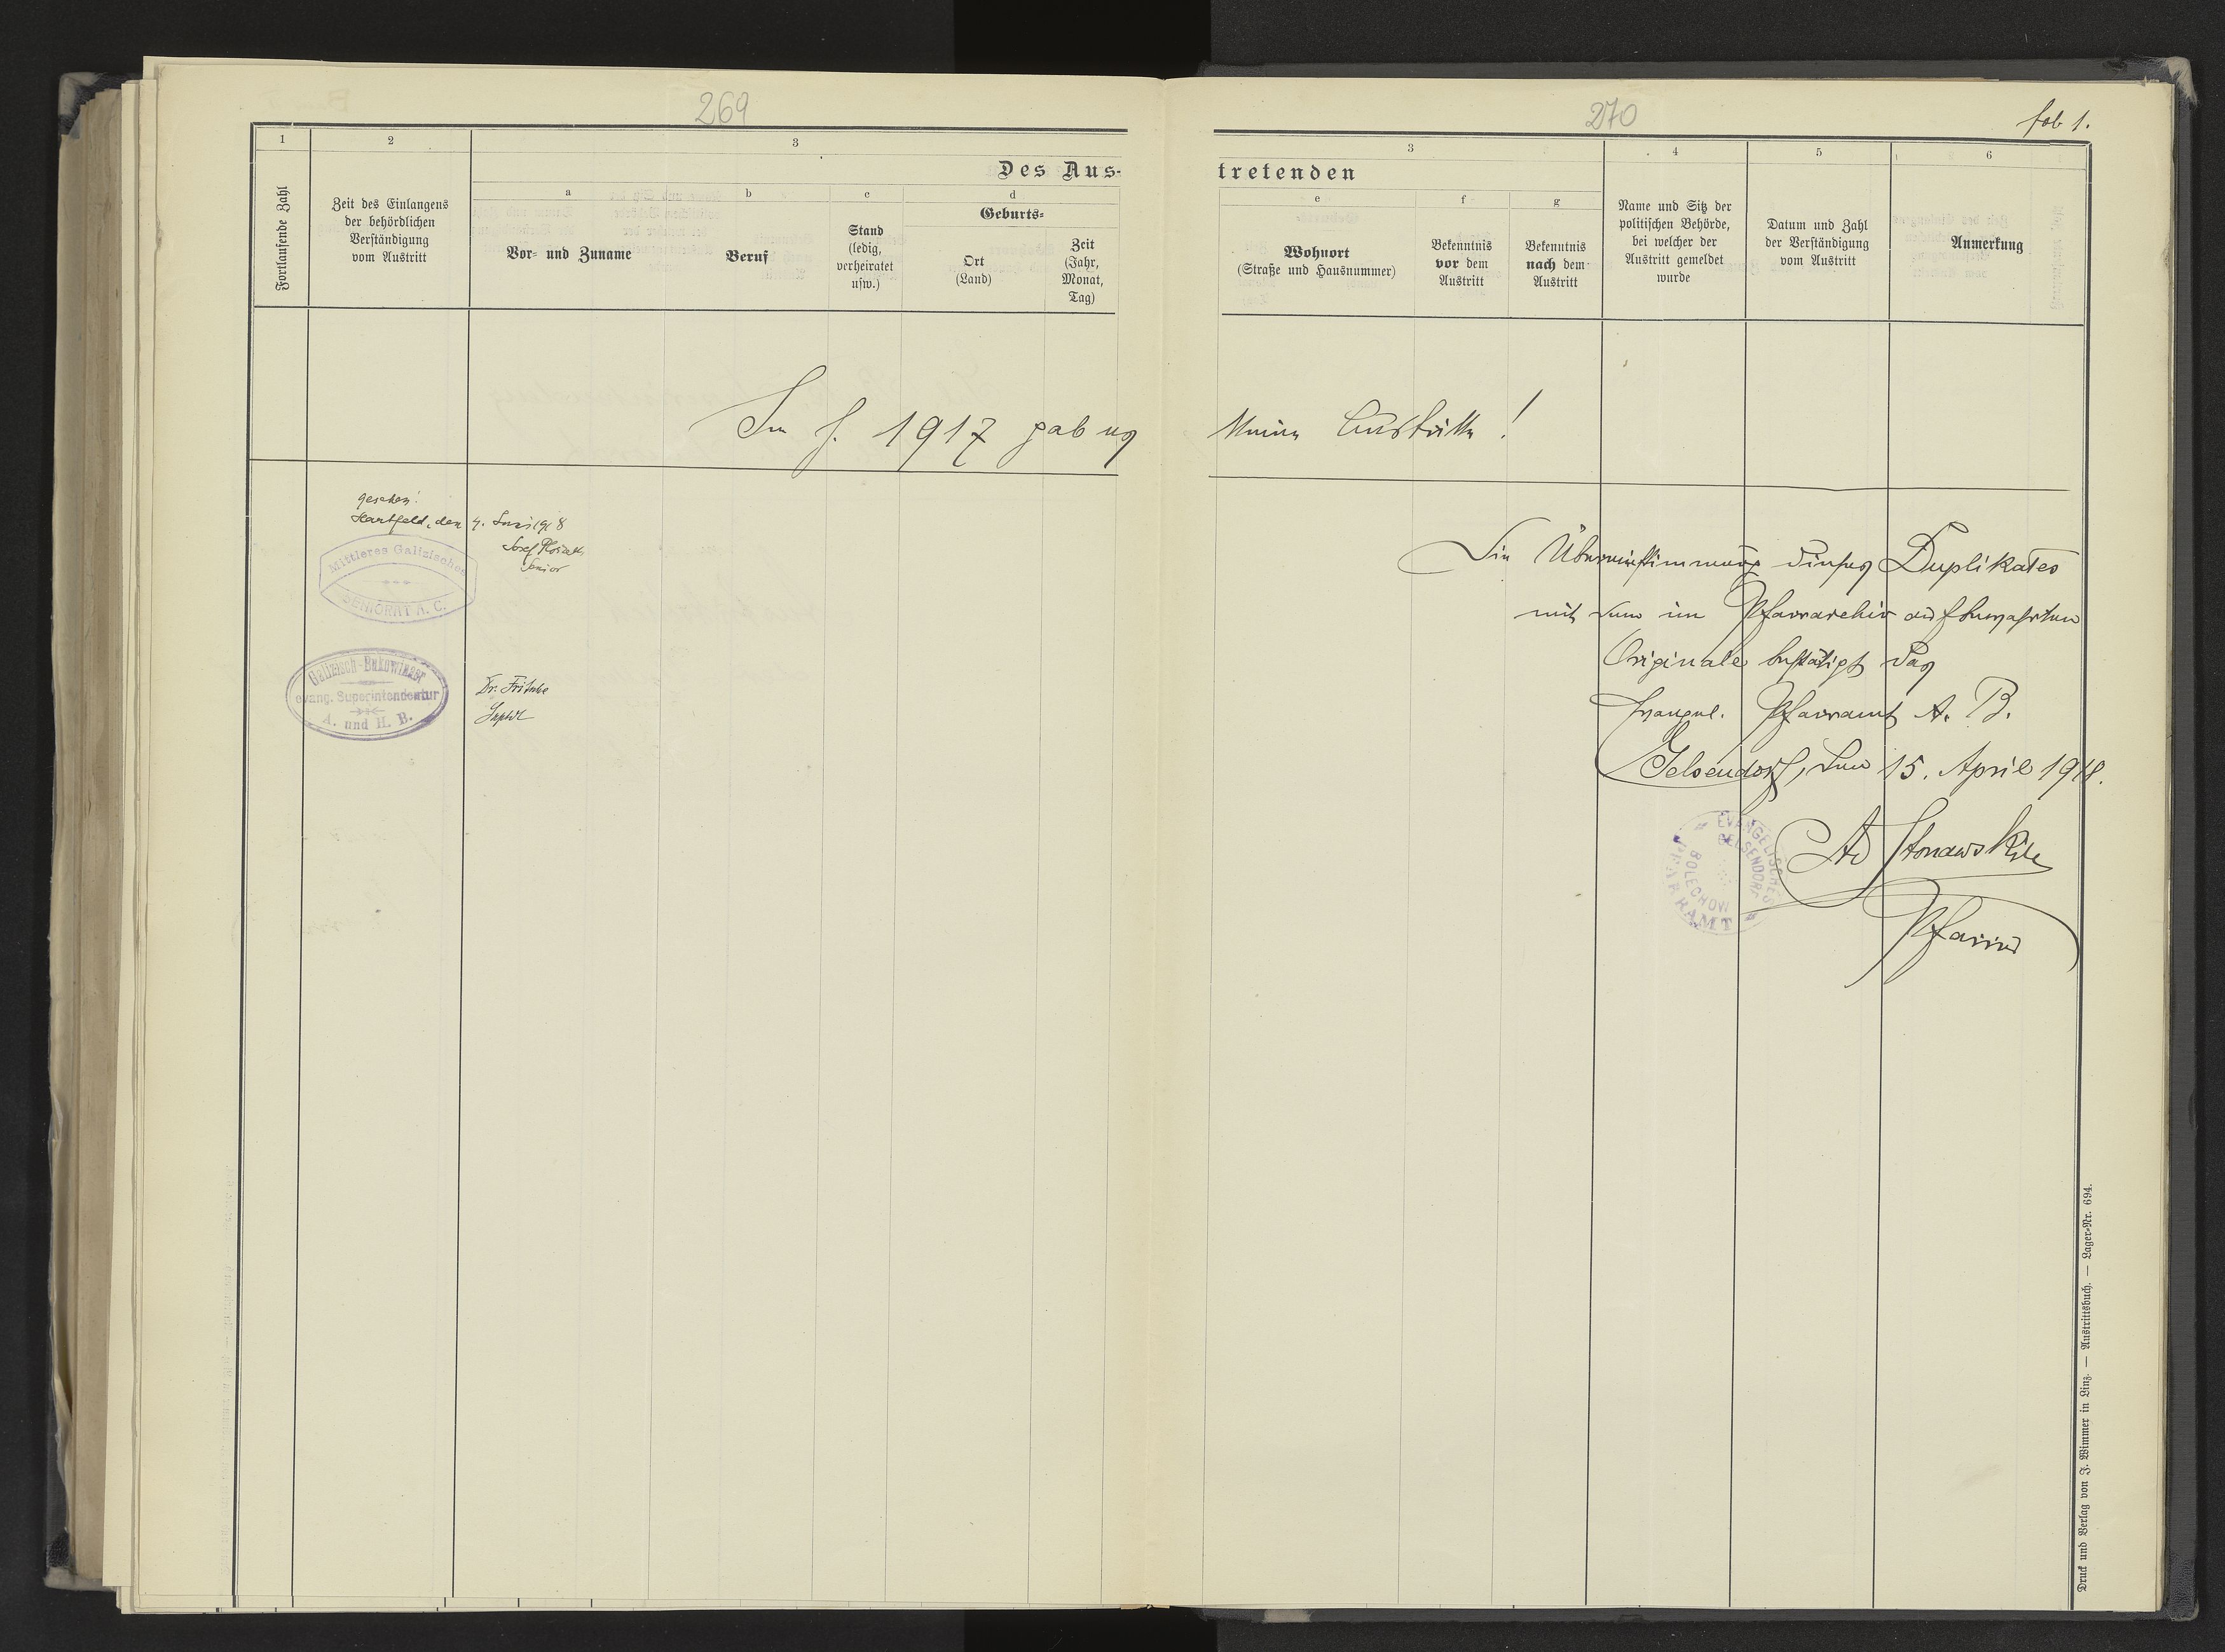 269
1
2
3
Des Aus-
Fortlaufende Zahl
Zeit des Einlangens
der behördlichen
Verständigung
vom Austritt
a
b
c
d
Vor- und Zuname
Beruf
Stand
(ledig,
verheiratet
usw.)
Geburts-
Ort
(Land)
Zeit
(Jahr,
Monat,
Tag)
Im J. 1917 gab es
gesehen!
Hartfeld, den 4. Juni 1918
Josef
Senior
Mittleres Galizisches
SENIORAT A. C.
Galizisch-Bukowinaer
evang. Superintendentur
A. und H. B.
Dr. Fritsche
Suptdt
270
fol 1.
3
4
5
6
tretenden
e
f
g
Wohnort
(Straße und Hausnummer)
Bekenntnis
vor dem
Austritt
Bekenntnis
nach dem
Austritt
Name und Sitz der
politischen Behörde,
bei welcher der
Austritt gemeldet
wurde
Datum und Zahl
der Verständigung
vom Austritt
Anmerkung
keine Austritte!
Die Übereinstimmung dieses Duplikates
mit dem im Pfarrarchiv aufbewahrten
Originale bestätigt das
Evangel. Pfarramt A. B.
Gelsendorf, den 15. April 1918.
EVANGELISCHES
PFARRAMT
GELSENDORF
BOLECHOW
Ad Stonawski
Pfarrer
Druck und Verlag von J. Wimmer in Linz. — Austrittsbuch. — Lager-Nr. 694.